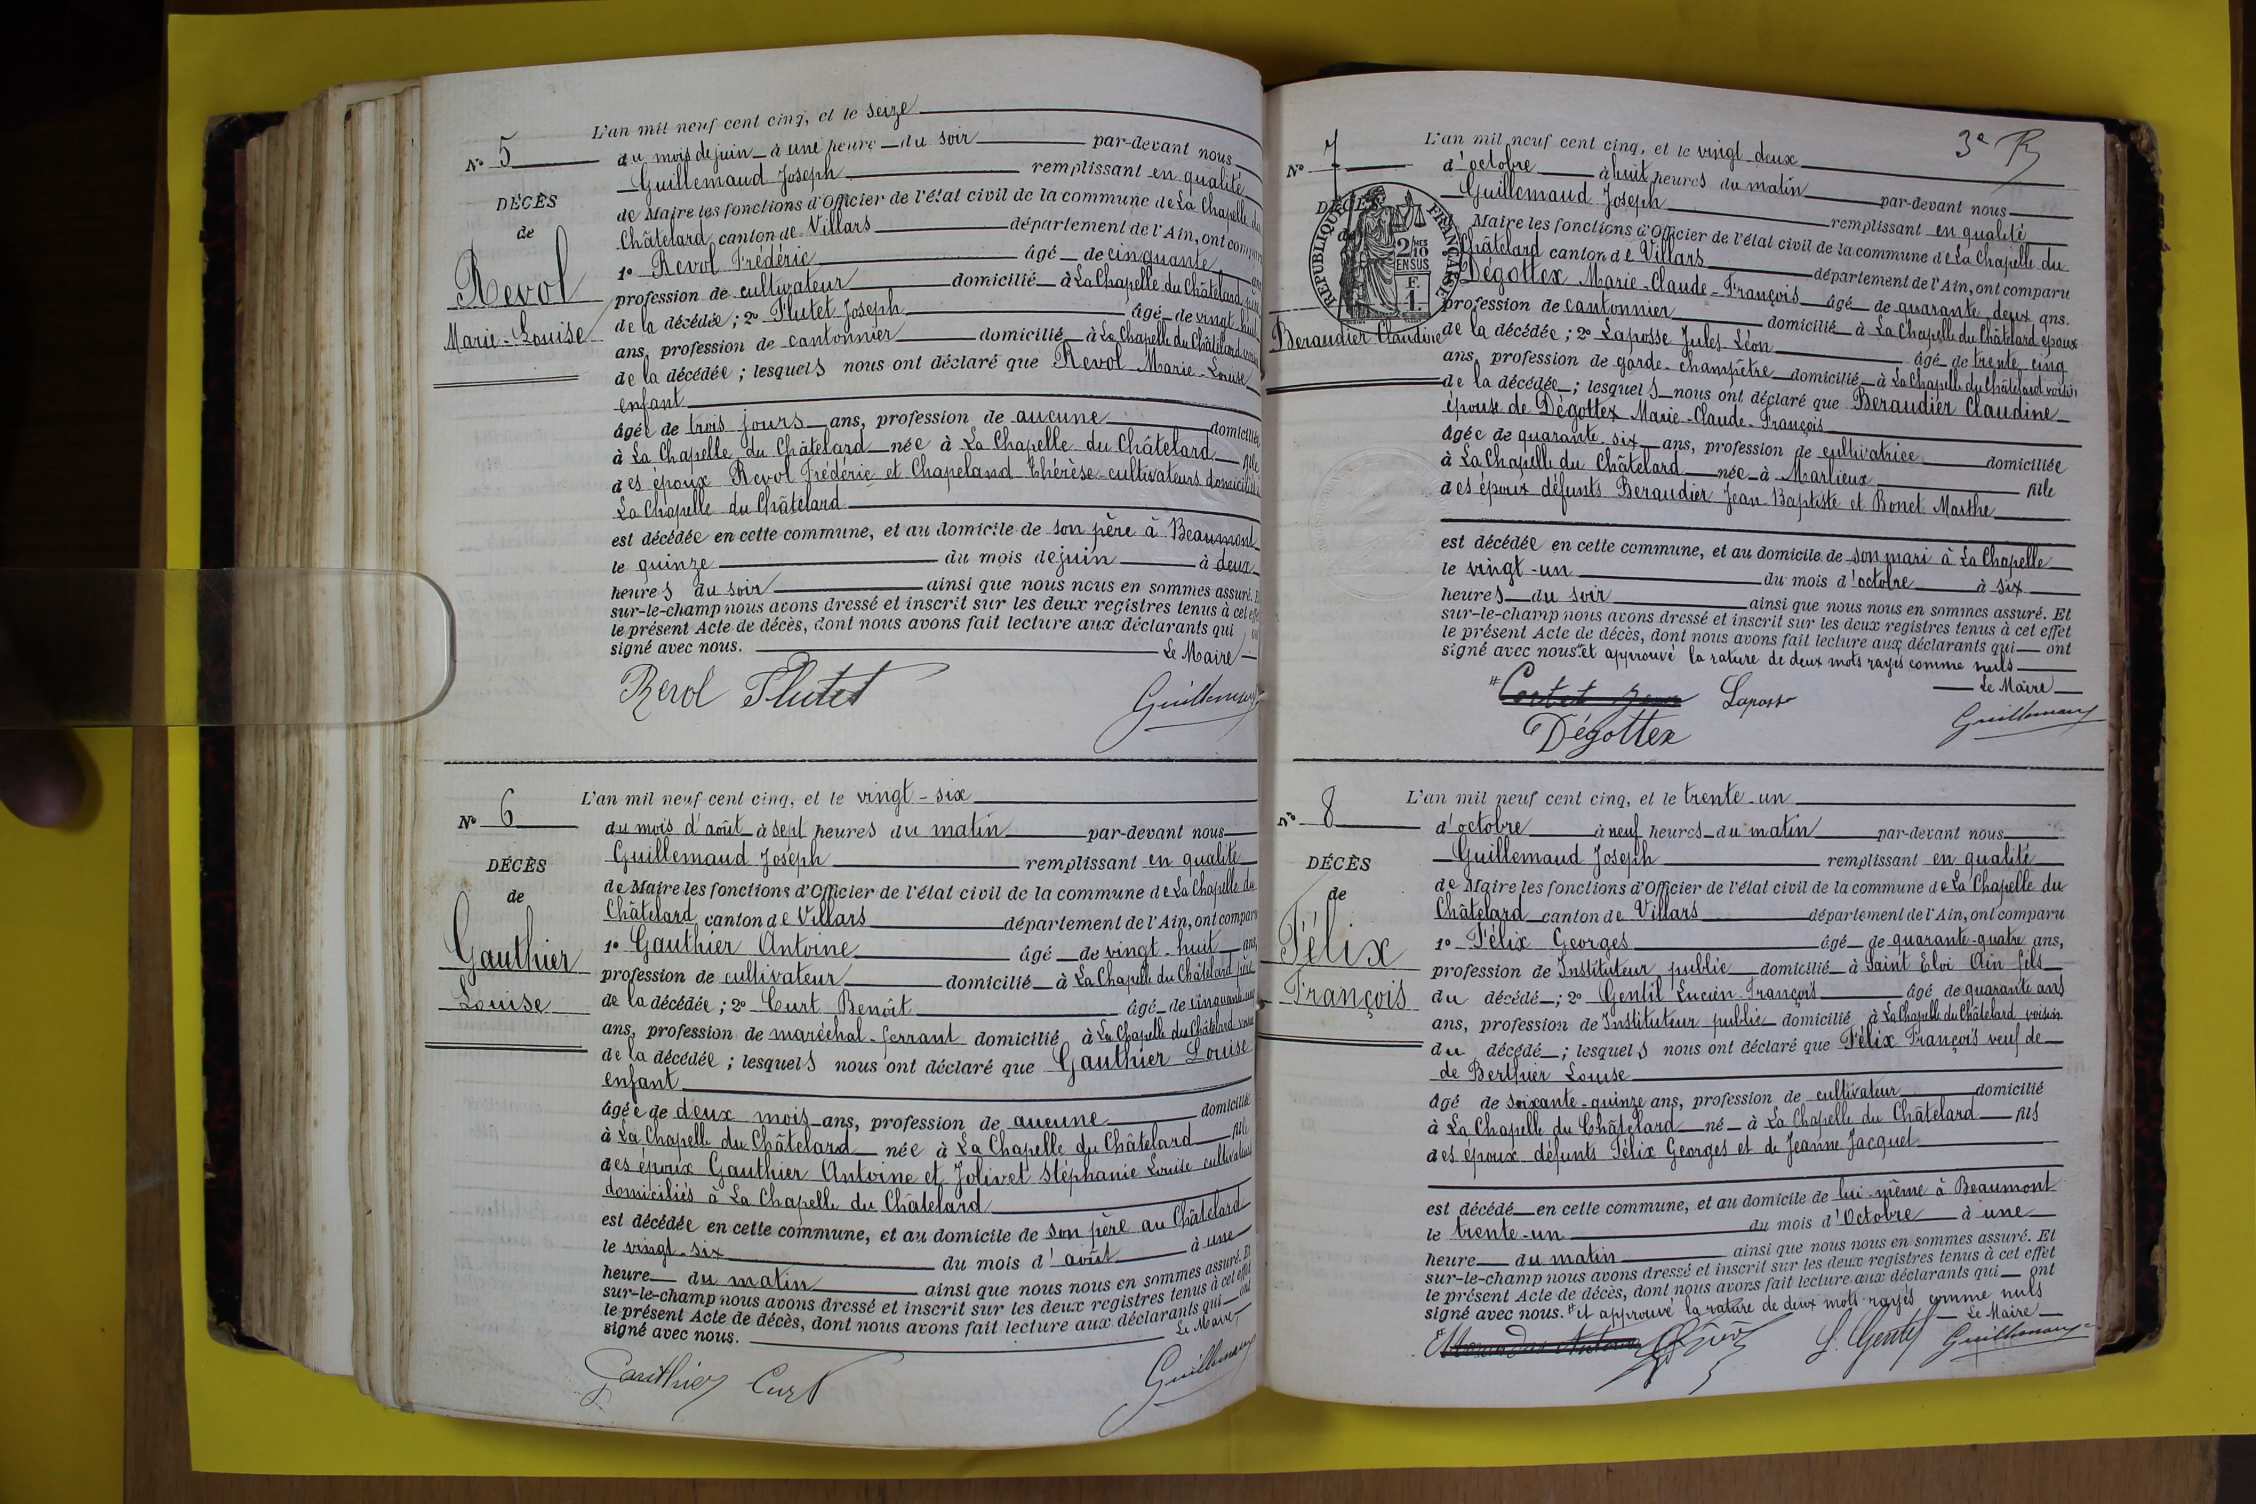 L'an mil neuf cent cinq, et le seize
No 5
du mois de juin à une heure du soir par-devant nous
Guillemaud Joseph remplissant en qualité
DÉCÈS
de Maire les fonctions d'Officier de l'état civil de la commune de La Chapelle du
de
Châtelard canton de Villars département de l'Ain, ont comparu
Revol
1º Revol Frédéric âgé de cinquante ans
profession de cultivateur domicilié à La Chapelle du Châtelard père
Marie-Louise
de la décédée ; 2º Flutet Joseph âgé de vingt huit
ans, profession de cantonnier domicilié à La Chapelle du Châtelard voisin
de la décédée ; lesquels nous ont déclaré que Revol Marie-Louise
enfant
âgée de trois jours ans, profession de aucune domiciliée
à La Chapelle du Châtelard née à La Chapelle du Châtelard fille
des époux Revol Frédéric et Chapeland Thérèse cultivateurs domiciliés
La Chapelle du Châtelard
est décédée en cette commune, et au domicile de son père à Beaumont
le quinze du mois de juin à deux
heures du soir ainsi que nous nous en sommes assuré. Et
sur-le-champ nous avons dressé et inscrit sur les deux registres tenus à cet effet
le présent Acte de décès, dont nous avons fait lecture aux déclarants qui ont
signé avec nous. Le Maire
Revol Flutet Guillemaud
L'an mil neuf cent cinq, et le vingt-six
No 6
du mois d'août à sept heures du matin par-devant nous
Guillemaud Joseph remplissant en qualité
DÉCÈS
de Maire les fonctions d'Officier de l'état civil de la commune de La Chapelle du
de
Châtelard canton de Villars département de l'Ain, ont comparu
Gauthier
1º Gauthier Antoine âgé de vingt-huit ans,
profession de cultivateur domicilié à La Chapelle du Châtelard père
Louise
de la décédée ; 2º Curt Benoît âgé de cinquante
ans, profession de maréchal-ferrant domicilié à La Chapelle du Châtelard voisin
de la décédée ; lesquels nous ont déclaré que Gauthier Louise
enfant
âgée de deux mois ans, profession de aucune domiciliée
à La Chapelle du Châtelard née à La Chapelle du Châtelard fille
des époux Gauthier Antoine et Jolivet Stéphanie Louise cultivateurs
domiciliés à La Chapelle du Châtelard
est décédée en cette commune, et au domicile de son père au Châtelard
le vingt-six du mois d'août à une
heure du matin ainsi que nous nous en sommes assuré. Et
sur-le-champ nous avons dressé et inscrit sur les deux registres tenus à cet effet
le présent Acte de décès, dont nous avons fait lecture aux déclarants qui ont
signé avec nous. Le Maire
Gauthier Curt Guillemaud
3e
L'an mil neuf cent cinq, et le vingt-deux
No 7
d'octobre à huit heures du matin par-devant nous
Guillemaud Joseph remplissant en qualité
DÉCÈS
de
RÉPUBLIQUE FRANÇAISE
2/10 MES
EN SUS
F.
1.
Maire les fonctions d'Officier de l'état civil de la commune de La Chapelle du
Châtelard canton de Villars département de l'Ain, ont comparu
Dégottex Marie-Claude-François âgé de quarante deux ans.
profession de cantonnier domicilié à La Chapelle du Châtelard époux
Beraudier Claudine
de la décédée ; 2º Laposse Jules Léon âgé de trente cinq
ans, profession de garde-champêtre domicilié à La Chapelle du Châtelard voisin
de la décédée ; lesquels nous ont déclaré que Beraudier Claudine
épouse de Dégottex Marie-Claude-François
âgée de quarante-six ans, profession de cultivatrice domiciliée
à La Chapelle du Châtelard née à Marlieux fille
des époux défunts Beraudier Jean-Baptiste et Bonet Marthe
est décédée en cette commune, et au domicile de son mari à La Chapelle
le vingt-un du mois d'octobre à six
heures du soir ainsi que nous nous en sommes assuré. Et
sur-le-champ nous avons dressé et inscrit sur les deux registres tenus à cet effet
le présent Acte de décès, dont nous avons fait lecture aux déclarants qui ont
signé avec nous. # et approuvé la rature de deux mots rayés comme nuls
Le Maire
# Laposse Guillemaud
Dégottex
L'an mil neuf cent cinq, et le trente-un
No 8
d'octobre à neuf heures du matin par-devant nous
Guillemaud Joseph remplissant en qualité
DÉCÈS
de Maire les fonctions d'Officier de l'état civil de la commune de La Chapelle du
de
Châtelard canton de Villars département de l'Ain, ont comparu
Félix
1º Félix Georges âgé de quarante-quatre ans,
profession de Instituteur public domicilié à Saint Eloi Ain fils
François
du décédé ; 2º Gentil Lucien-François âgé de quarante ans
ans, profession de Instituteur public domicilié à La Chapelle du Châtelard voisin
du décédé ; lesquels nous ont déclaré que Félix François veuf de
de Berthier Louise
âgé de soixante-quinze ans, profession de cultivateur domicilié
à La Chapelle du Châtelard né à La Chapelle du Châtelard fils
des époux défunts Félix Georges et de Jeanne Jacquet
est décédé en cette commune, et au domicile de lui-même à Beaumont
le trente-un du mois d'Octobre à une
heure du matin ainsi que nous nous en sommes assuré. Et
sur-le-champ nous avons dressé et inscrit sur les deux registres tenus à cet effet
le présent Acte de décès, dont nous avons fait lecture aux déclarants qui ont
signé avec nous. # et approuvé la rature de deux mots rayés comme nuls
Le Maire
L. Gentil Guillemaud